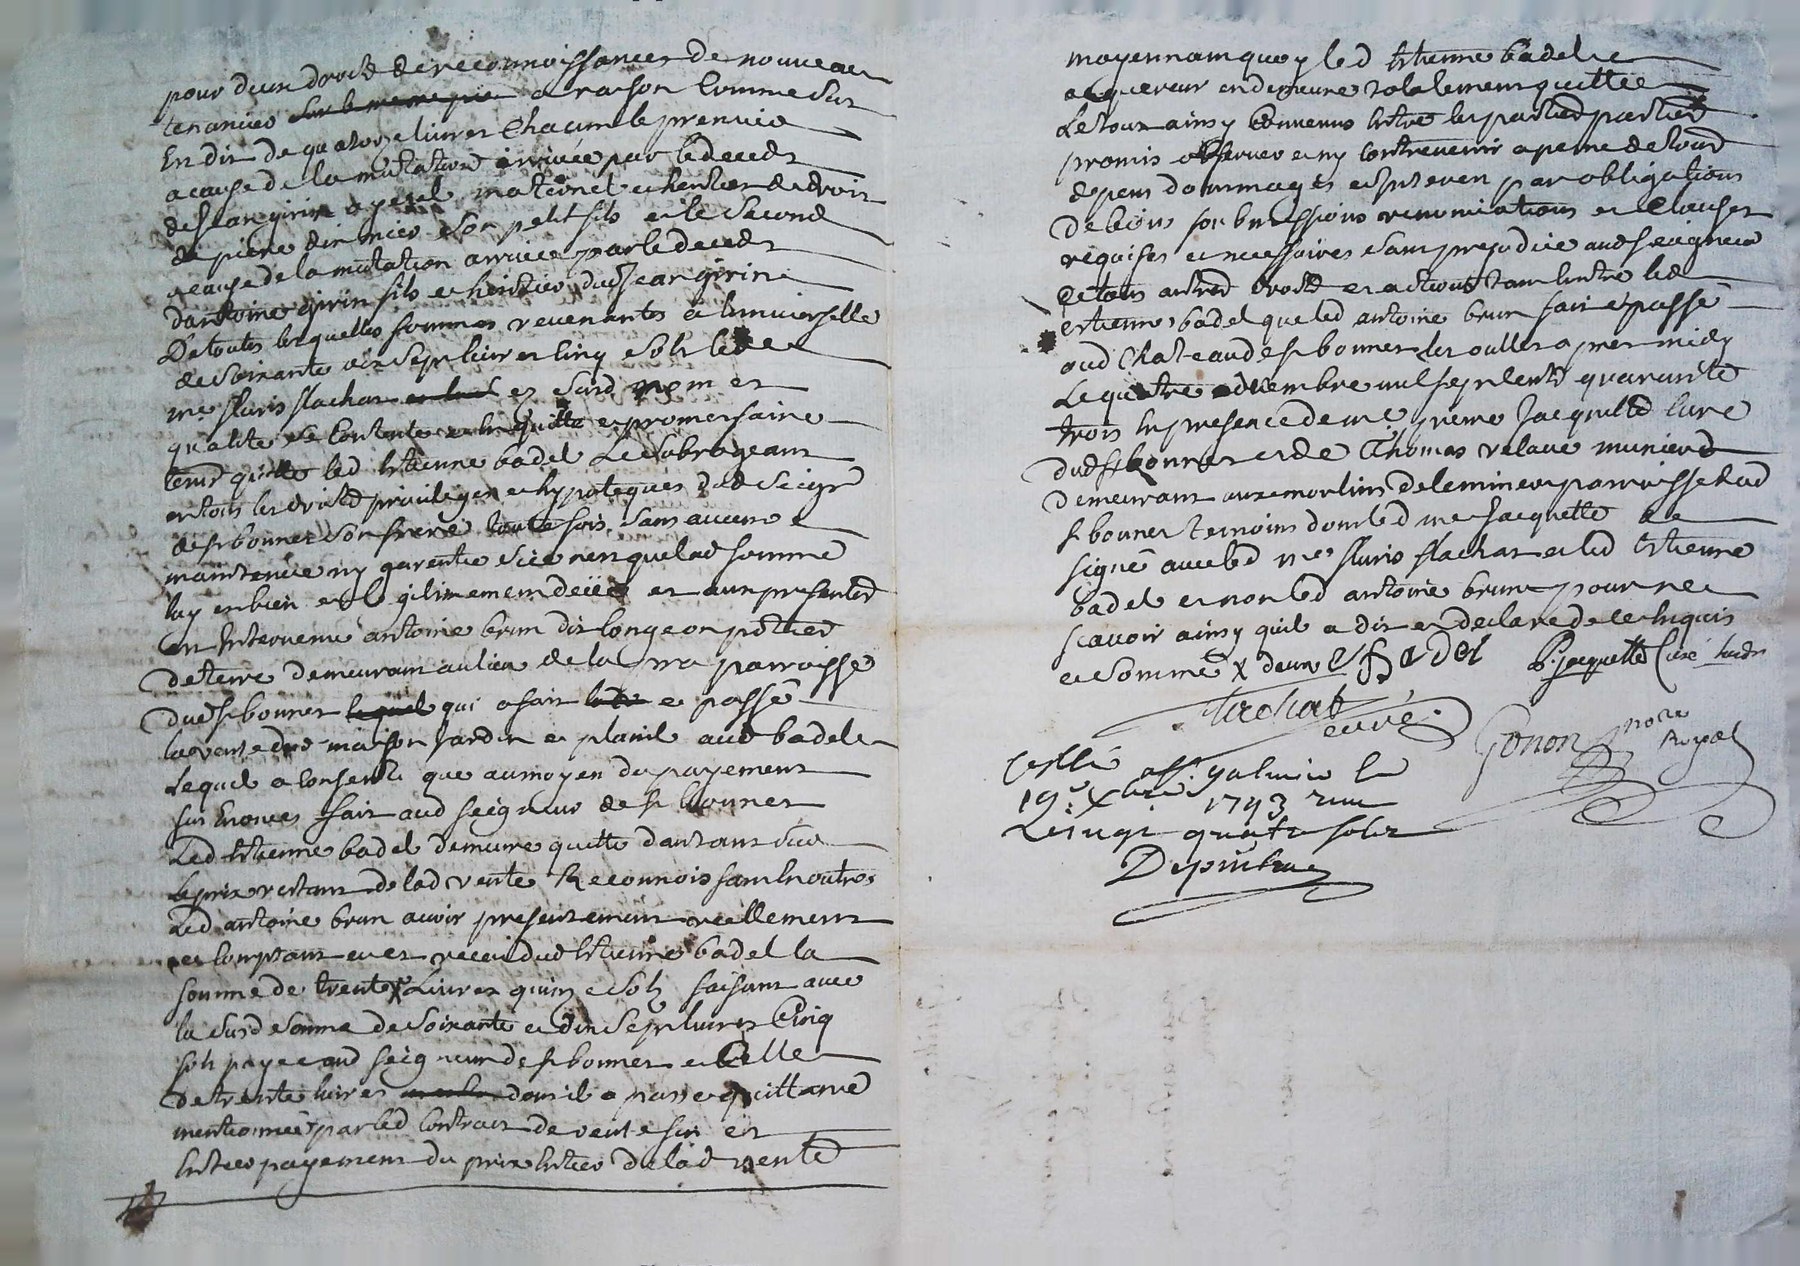 pour deux droits de reconnoissances de nouveau
tenancier sur le meme prix a raison comme sur
En dit de quatorze livres chacun le premier
a cause de la mutation arrivée par le deceds
de Jean girin ayeul maternel et heritier de droit
de pierre son petit fils et le second
a cause de la mutation arrivée par le deceds
dantoine girin fils et heritier dud Jean girin
De toutes lesquelles sommes revenantes à luniverselle
de soixante dix sept livres cinq sols led
mre fluris flachat es surd nom et
qualité se contente et en quitte et promet faire
tenir quitte led Etienne badel Le subrogeant
en tous les droits privileges et hypoteques dud Seigr
de st bonnet son frere toute fois sans aucune
maintenüe ny garentie sice nest que lad somme
luy est bien et legitimement deüe et aux presentes
est Intervenu antoine brun dit longeon potier
de terre demeurant au lieu de la parroisse
dud st bonnet lequel qui a fait et passé
la vente dud maison Jardin et plassil aud badel
Lequel a consenti que au moyen du payement
sus Enoncé fait aud seigneur de st bonnet
Led Etienne badel demeure quitte dautant sur
le prix restant de lad vente Reconnoissant En outre
Led antoine brun avoir presentement reellement
et comptant eu et receu dud Etienne badel la
somme de trente Livres quinze sols faisant avec
la susd somme de soixante et dix sept livres Cinq
sols payee aud seigneur de st bonnet et Celle
de trente livres dont il a passé quittance
mentionnée par led Contrat de vente sus et
Entier payement du prix Entier de lad vente
moyennant quoy led Etienne badel
acquereur en demeure totalement quitte
Le tout ainsy Convenus Entre les parties parties
promis observer et ny contrevenir a peine de tous
depens dommages et Interets par obligations
De biens soubmissions renonciations et Clauses
requises et necessaires sans prejudice aud seigneur
de tous autres droits et actions tant Contre led
Etienne badel que led antoine brun fait et passé
aud chateau de st bonnet les oulles apres midy
Le quatre decembre mil sept cents quarante
trois En presence de mre pierre Jacquette Curé
dud st bonnet et de Thomas relave munier
demeurant aux moulins de parroisse dud
st bonnet temoins dont led mre Jacquette a
signé avec led mre fluris flachat et led Etienne
badel et non led antoine brun pour ne
scavoir ainsy quil a dit et declaré de ce Enquis
et sommé x deux E badel P. Jacquette Curé
flachat
curé
Gonon nore
Royal
scellé a st galmier le
19e Xbre 1743 reçu
quatre sols